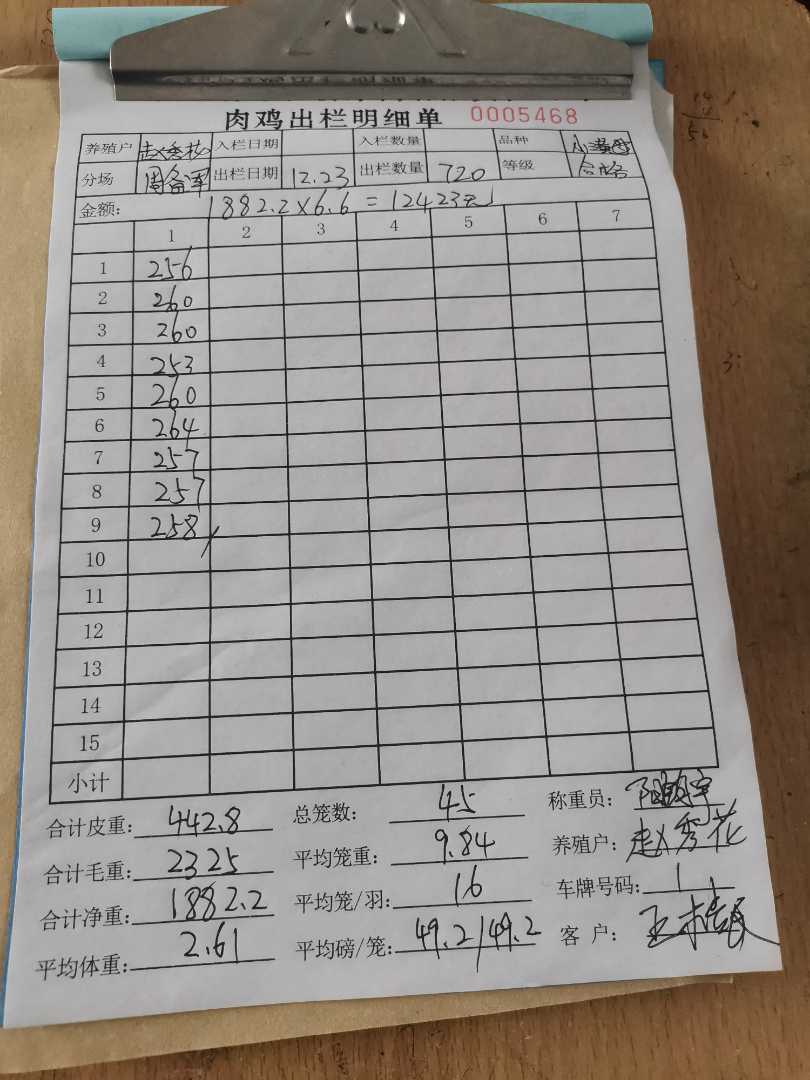 肉鸡出栏明细单 0005468
养殖户 赵秀花 入栏日期 入栏数量 品种
分场 出栏日期 12.23 出栏数量 720 等级 合格
金额: 1882.2×6.6=12423元
1 2 3 4 5 6 7
1 256
2 260
3 260
4 253
5 260
6 264
7 257
8 257
9 258
10
11
12
13
14
15
小计
合计皮重: 442.8 总笼数: 45 称重员:
合计毛重: 2325 平均笼重: 9.84 养殖户: 赵秀花
合计净重: 1882.2 平均笼/羽: 16 车牌号码: 1
平均体重: 2.61 平均磅/笼: 49.2/49.2 客 户: